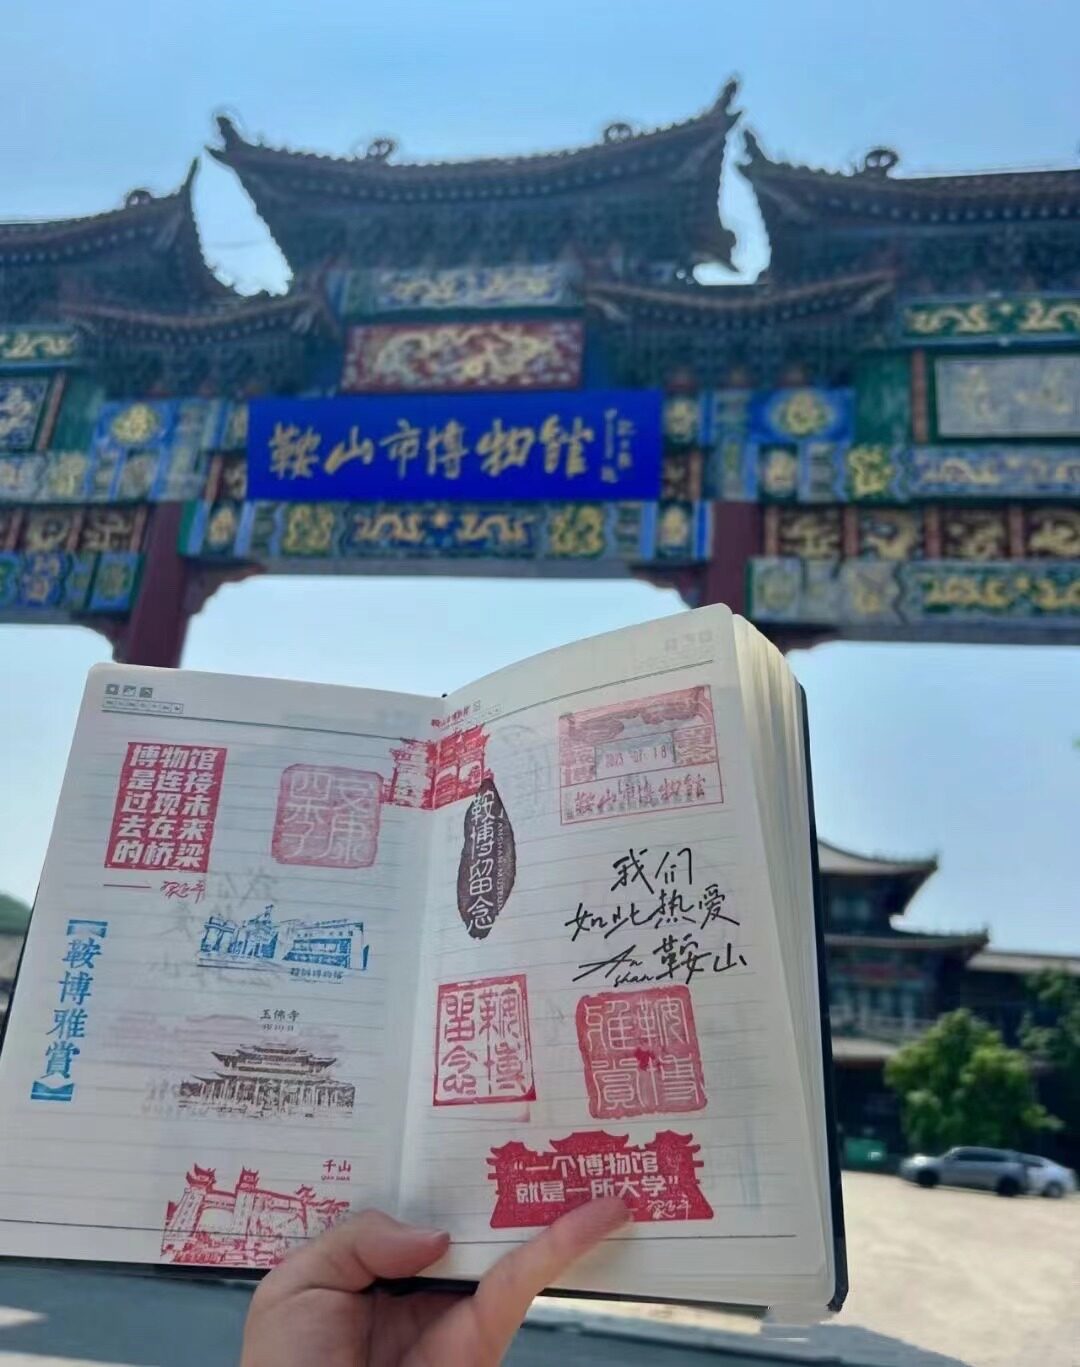 鞍山市博物馆
博物馆
是连接
过现未
去在来
的桥梁
鞍博雅賞
玉佛寺
千山
QIAN SHAN
鞍博留念
ANSHAN MUSEUM
鞍山市博物馆
我们
如此热爱
An
shan
鞍山
鞍博
留念
鞍博
雅賞
“一个博物馆
就是一所大学”